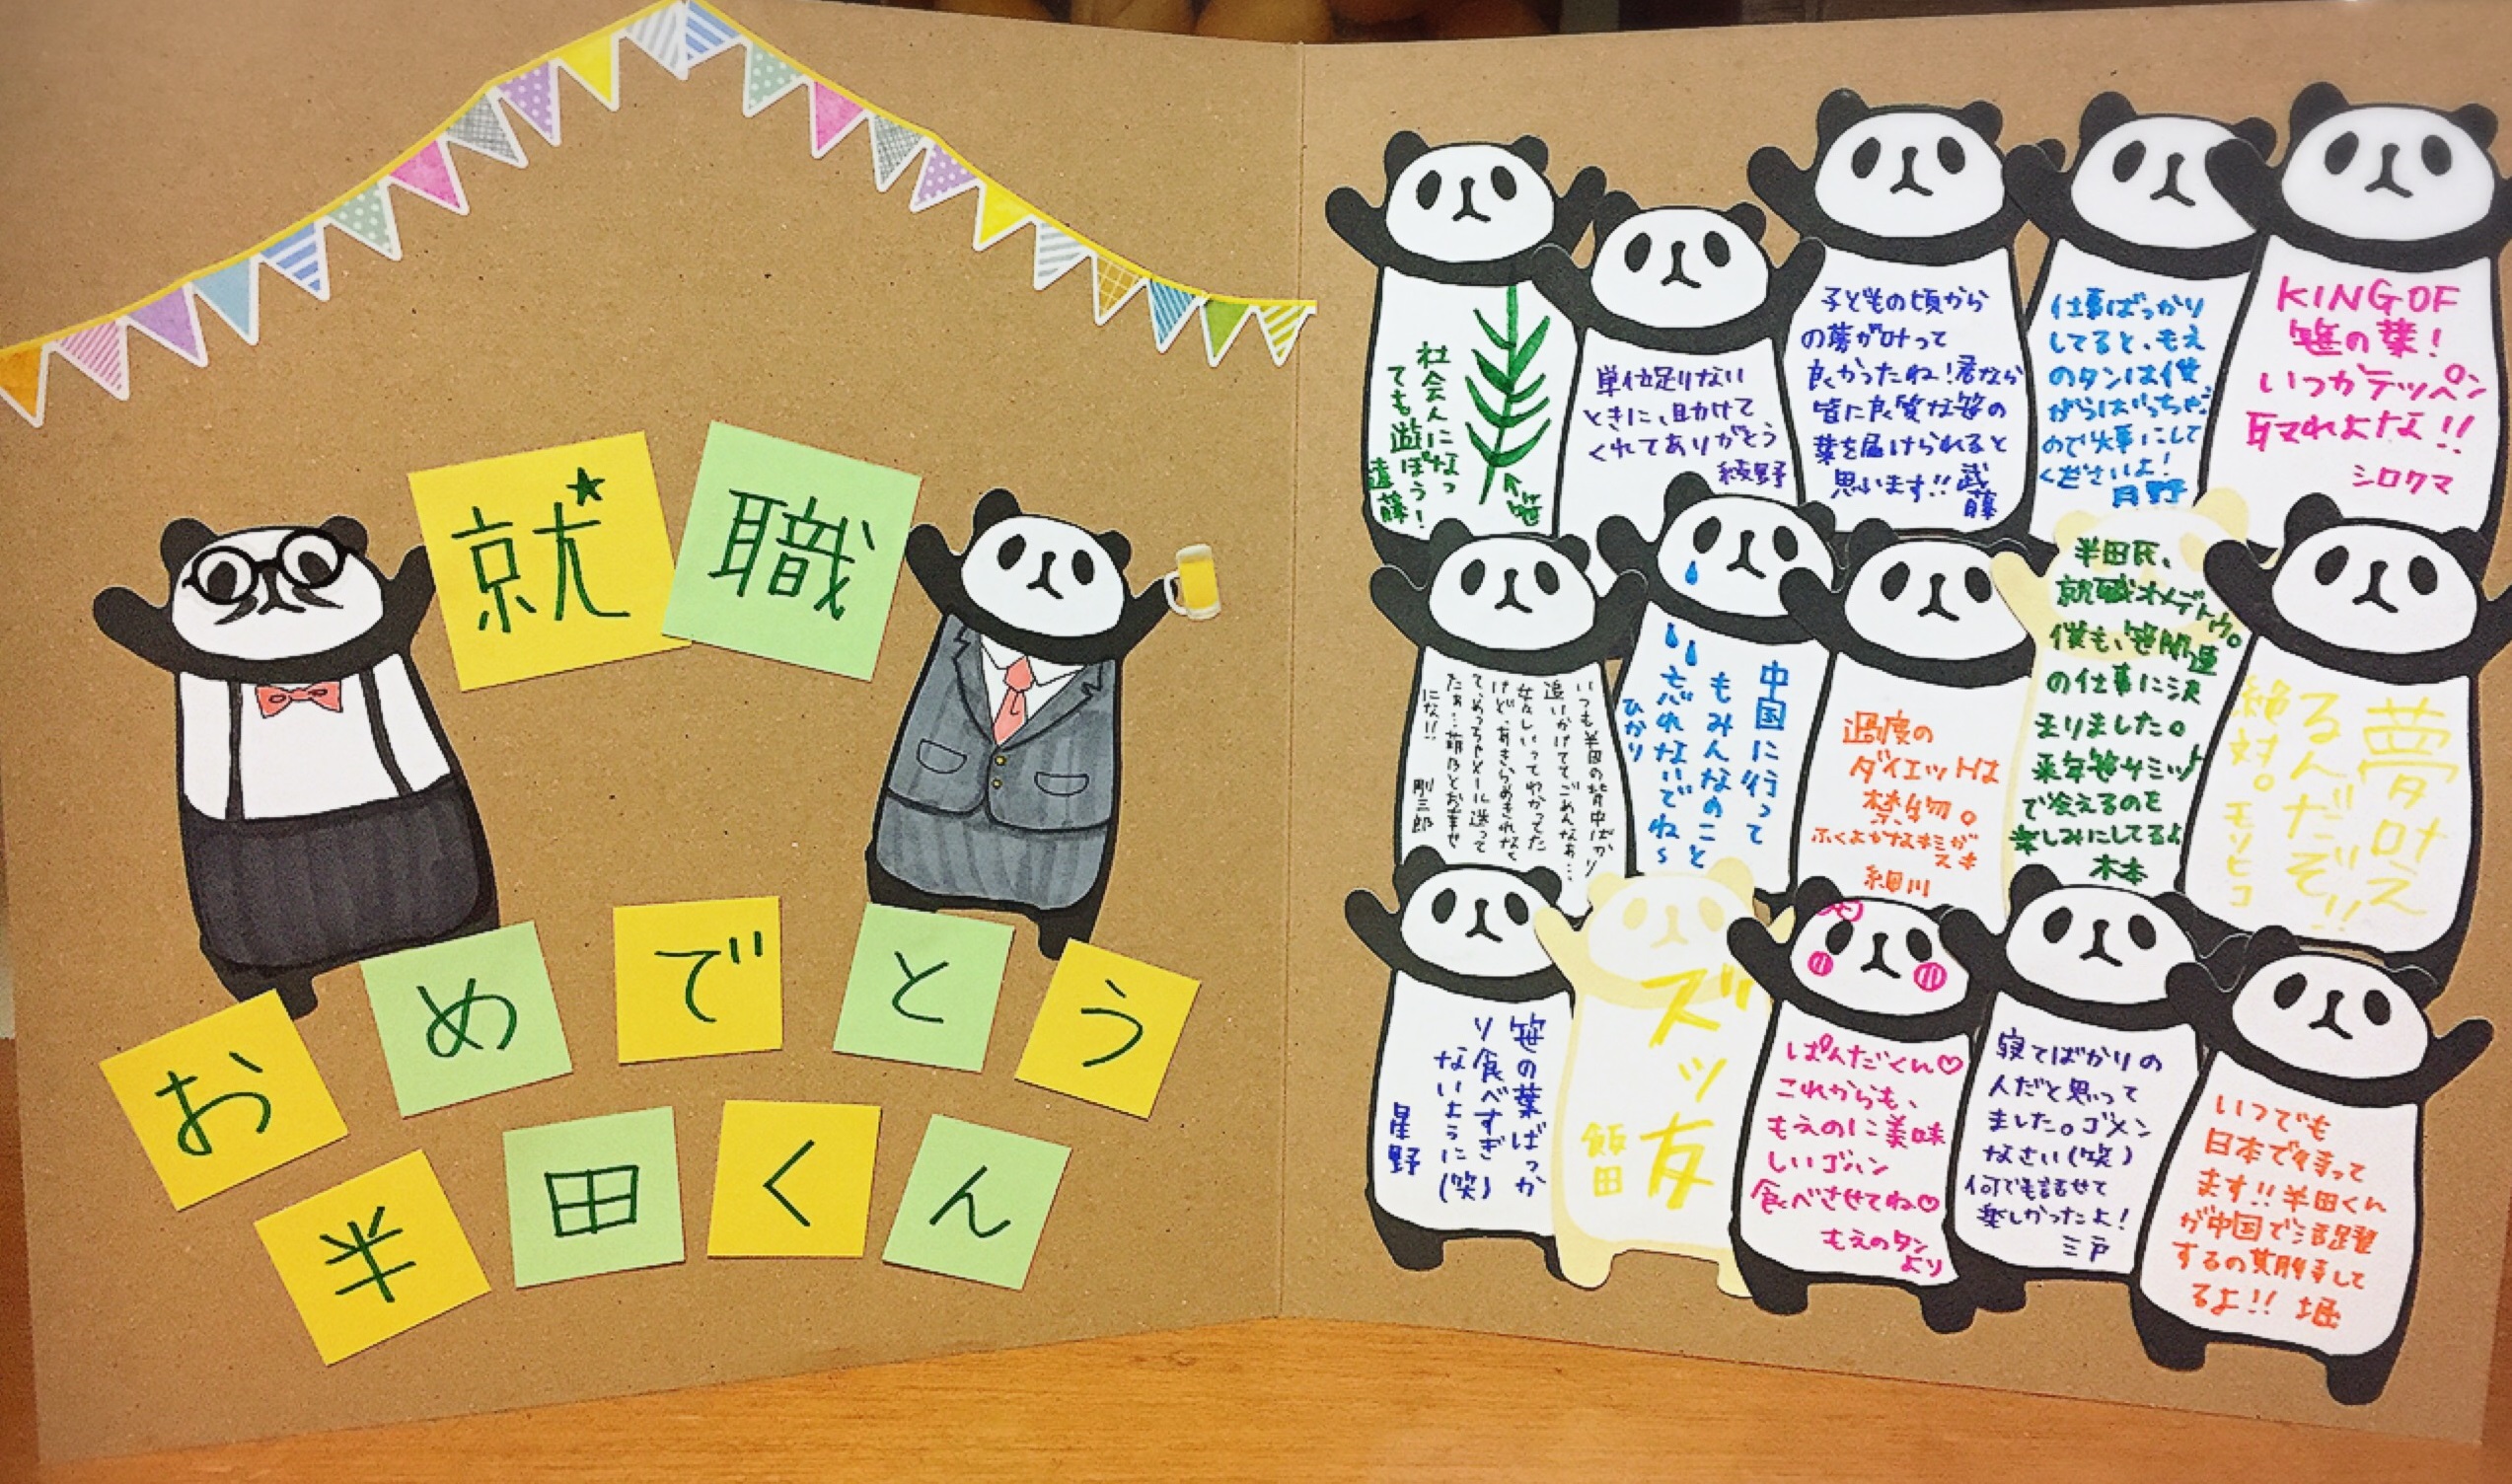 就
職
おめでとう
半田くん
社会人になっ
ても遊ぼう!
遠藤
↑笹
単位足りない
ときに、助けて
くれてありがとう
綾野
子どもの頃から
の夢が叶って
良かったね!君なら
皆に良質な笹の
葉を届けられると
思います!!武藤
仕事ばっかり
してると、もえ
のタンは僕
がうばっちゃう
ので大事にして
くださいよ!
月野
KING OF
笹の葉!
いつかテッペン
取れよな!!
シロクマ
いつも半田の背中ばかり
追いかけててごめんなぁ…
女々しいってわかってた
けど、あきらめきれなく
て、めっちゃメール送って
たぁ…萌乃とお幸せ
にな!!
剛三郎
中国に行って
もみんなのこと
忘れないでね~
ひかり
過度の
ダイエットは
禁物。
ふくよかなキミが
スキ
細川
半田氏、
就職オメデトウ。
僕も、笹関連
の仕事に決
まりました。
来年笹サミット
で会えるのを
楽しみにしてるよ
木本
夢叶え
るんだぞ!!
絶対。
モリヒコ
笹の葉ばっか
り食べすぎ
ないように(笑)
星野
ズッ友
飯田
ぱんだくん♡
これからも、
もえのに美味
しいゴハン
食べさせてね♡
もえのタン
より
寝てばかりの
人だと思って
ました。ゴメン
なさい(笑)
何でも話せて
楽しかったよ!
三戸
いつでも
日本で待って
ます!!半田くん
が中国で活躍
するの期待して
るよ!! 堀